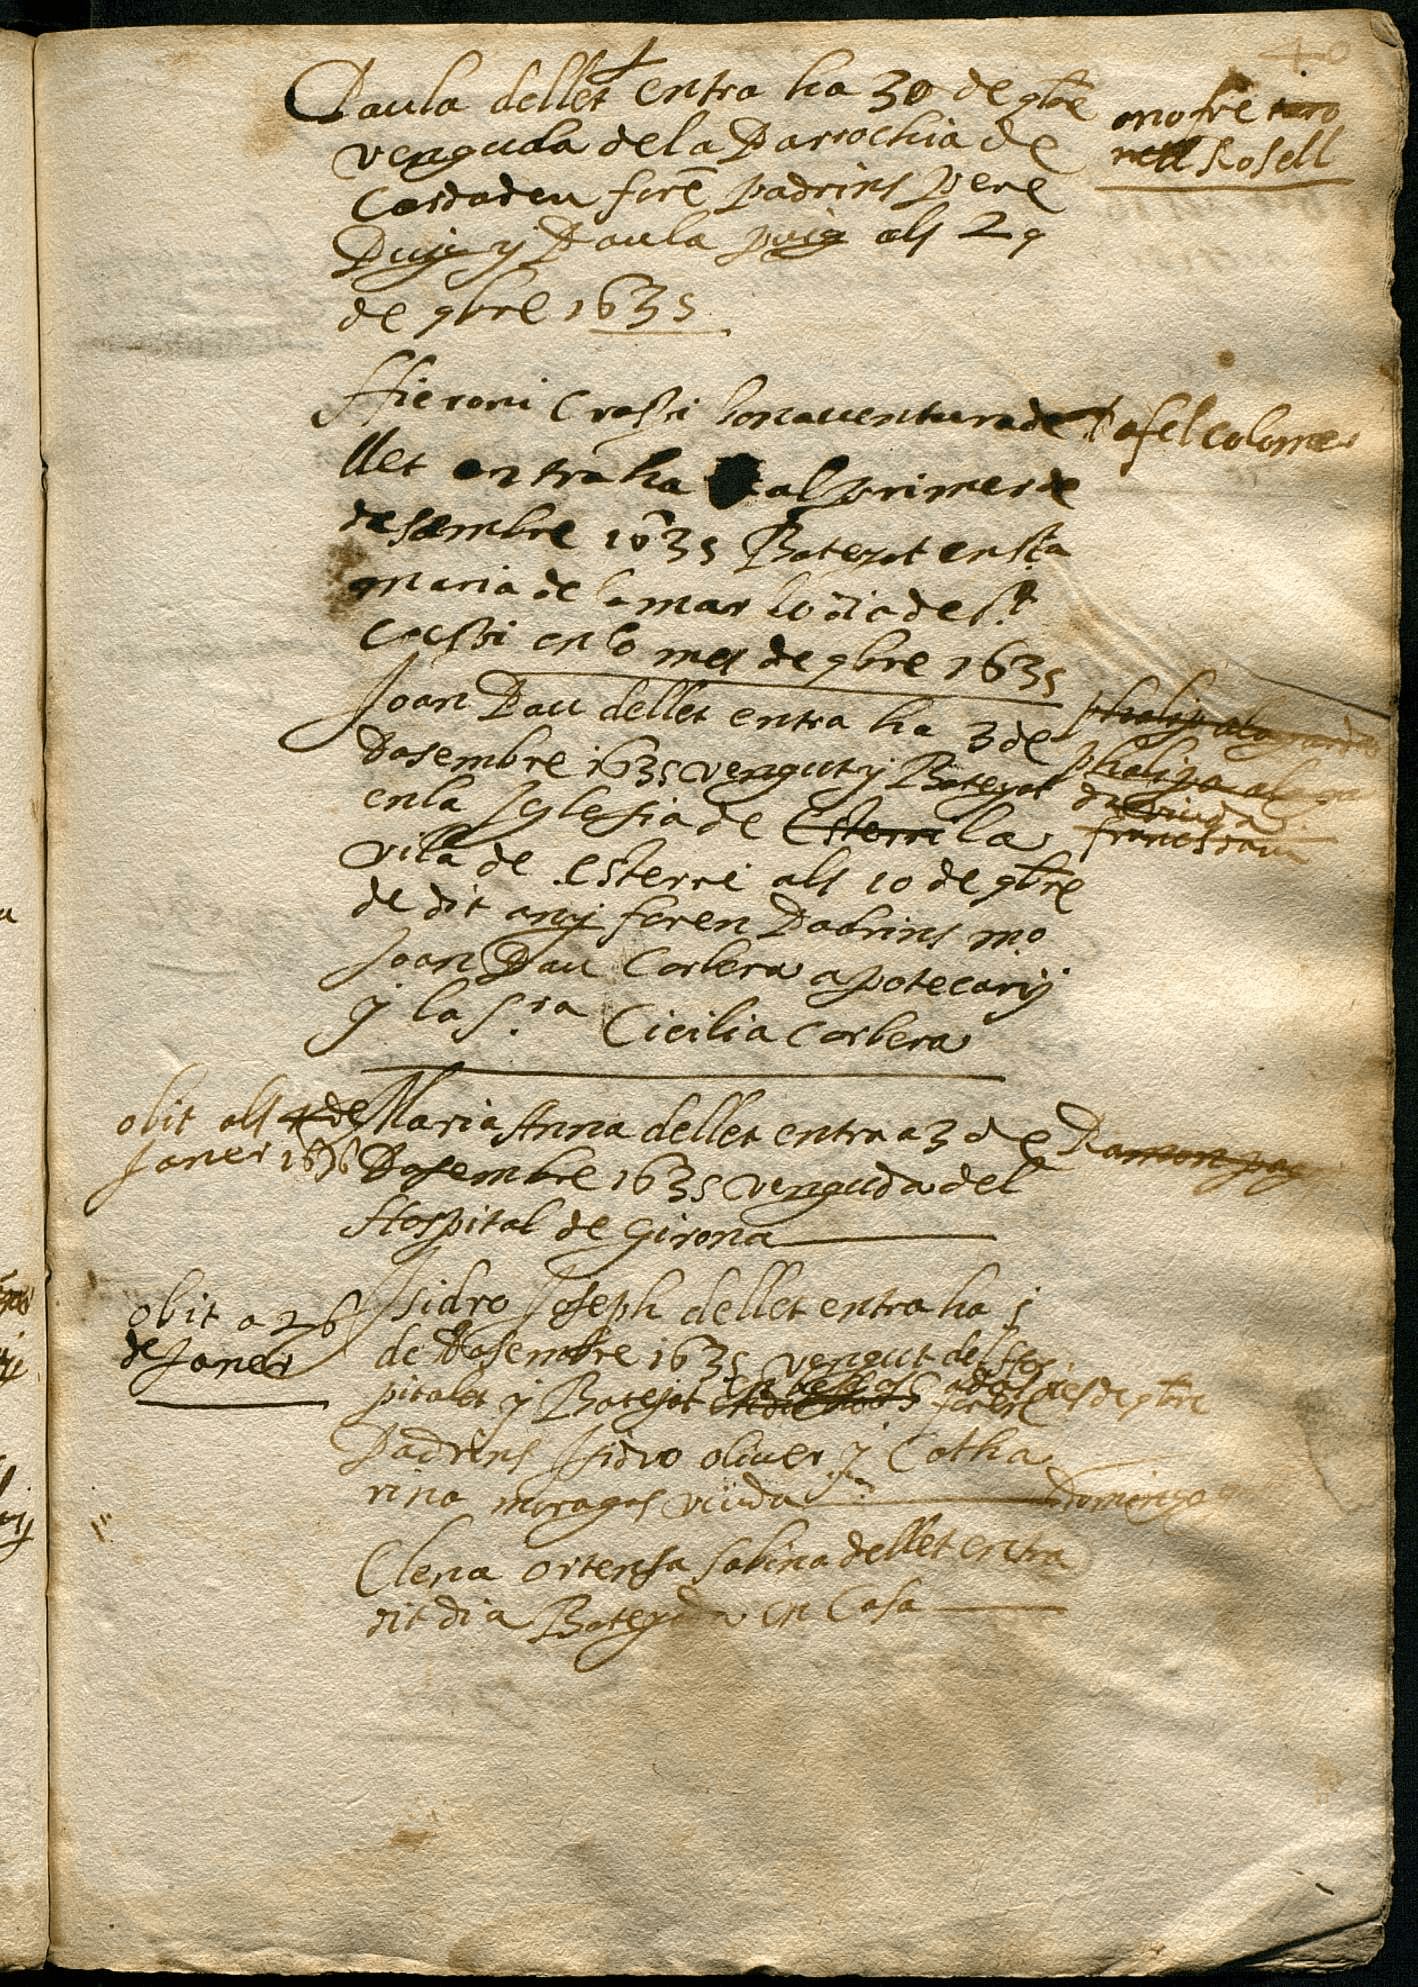 40
Paula dellet entra ha 30 de 9bre
onofre
Rosell
venguda de la Parrochia de
Cardadeu forē padrins pere
Puig y Paula puig als 29
de 9bre 1635
Hieroni Crassi bonauentura de
llet entra ha al primer de
desembre 1635 Batejat en sta
maria de la mar lo dia de st
Cassi en lo mes de 9bre 1635
Rafel colomer
Joan Pau dellet entra ha 3 de
Dasembre 1635 vengut y Batejat
en la Iglesia de Esterri la
vila de esterri als 10 de 9bre
de dit any foren Padrins mo
Joan Pau Corbera apotecarij
y la sra Cicilia Corbera
obit als 4 de
Janer 1636
Maria Anna dellet entra a 3 de
Dasembre 1635 venguda del
Hospital de Girona
Ramon
obit a 26
de Janer
Isidro Joseph dellet entra ha 5
de Dasembre 1635 vengut del Hos
pitalet y Batejat foren
Padrins Isidro oliuer y Catha
rina moragas viuda
Domingo
Elena ortensa sabina dellet entra
dit dia Batejada en Casa